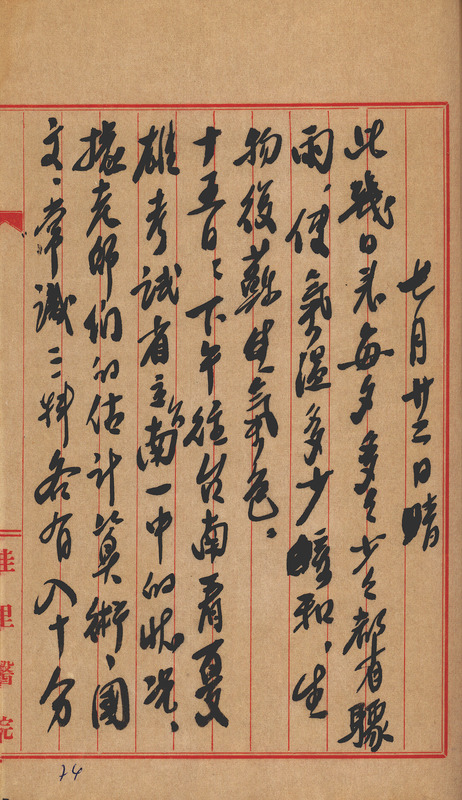 七月廿二日 晴
此幾日來每夕多多少少都有驟
雨、使氣溫多少暖和、生
物復蘇生氣色。
十五日、下午往台南看夏
雄考試省立台南一中的狀況、
據老師們的估計算術、國
文、常識三科各有八十分
佳里醫院
74